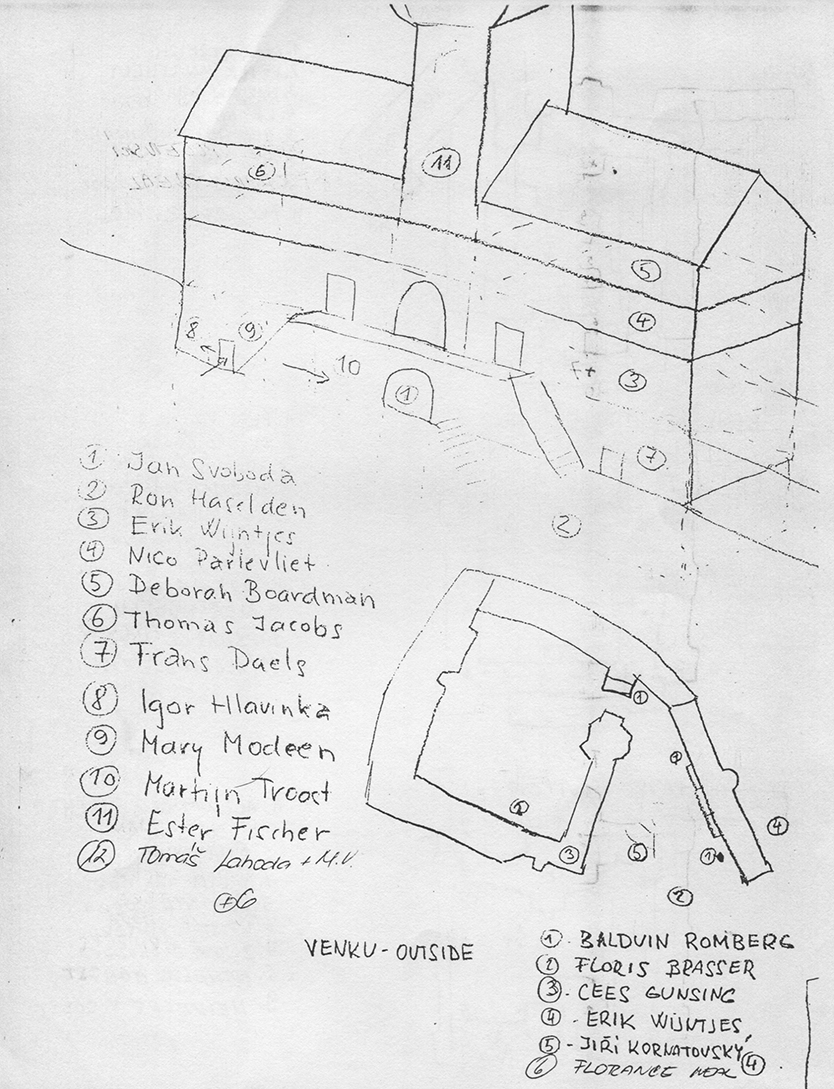 11
6
5
4
8
9
10
1
3
7
2
① Jan Svoboda
② Ron Haselden
③ Erik Wijntjes
④ Nico Parlevliet
⑤ Deborah Boardman
⑥ Thomas Jacobs
⑦ Frans Daels
⑧ Igor Hlavinka
⑨ Mary Modeen
⑩ Martijn Troost
⑪ Ester Fischer
⑫ Tomáš Lahoda + M.V.
+6
1
4
3
5
1
2
VENKU - OUTSIDE
① - BALDUIN ROMBERG
② FLORIS BRASSER
③ - CEES GUNSING
④ - ERIK WIJNTJES
⑤ - JIŘÍ KORNATOVSKÝ
⑥ FLORANCE ④